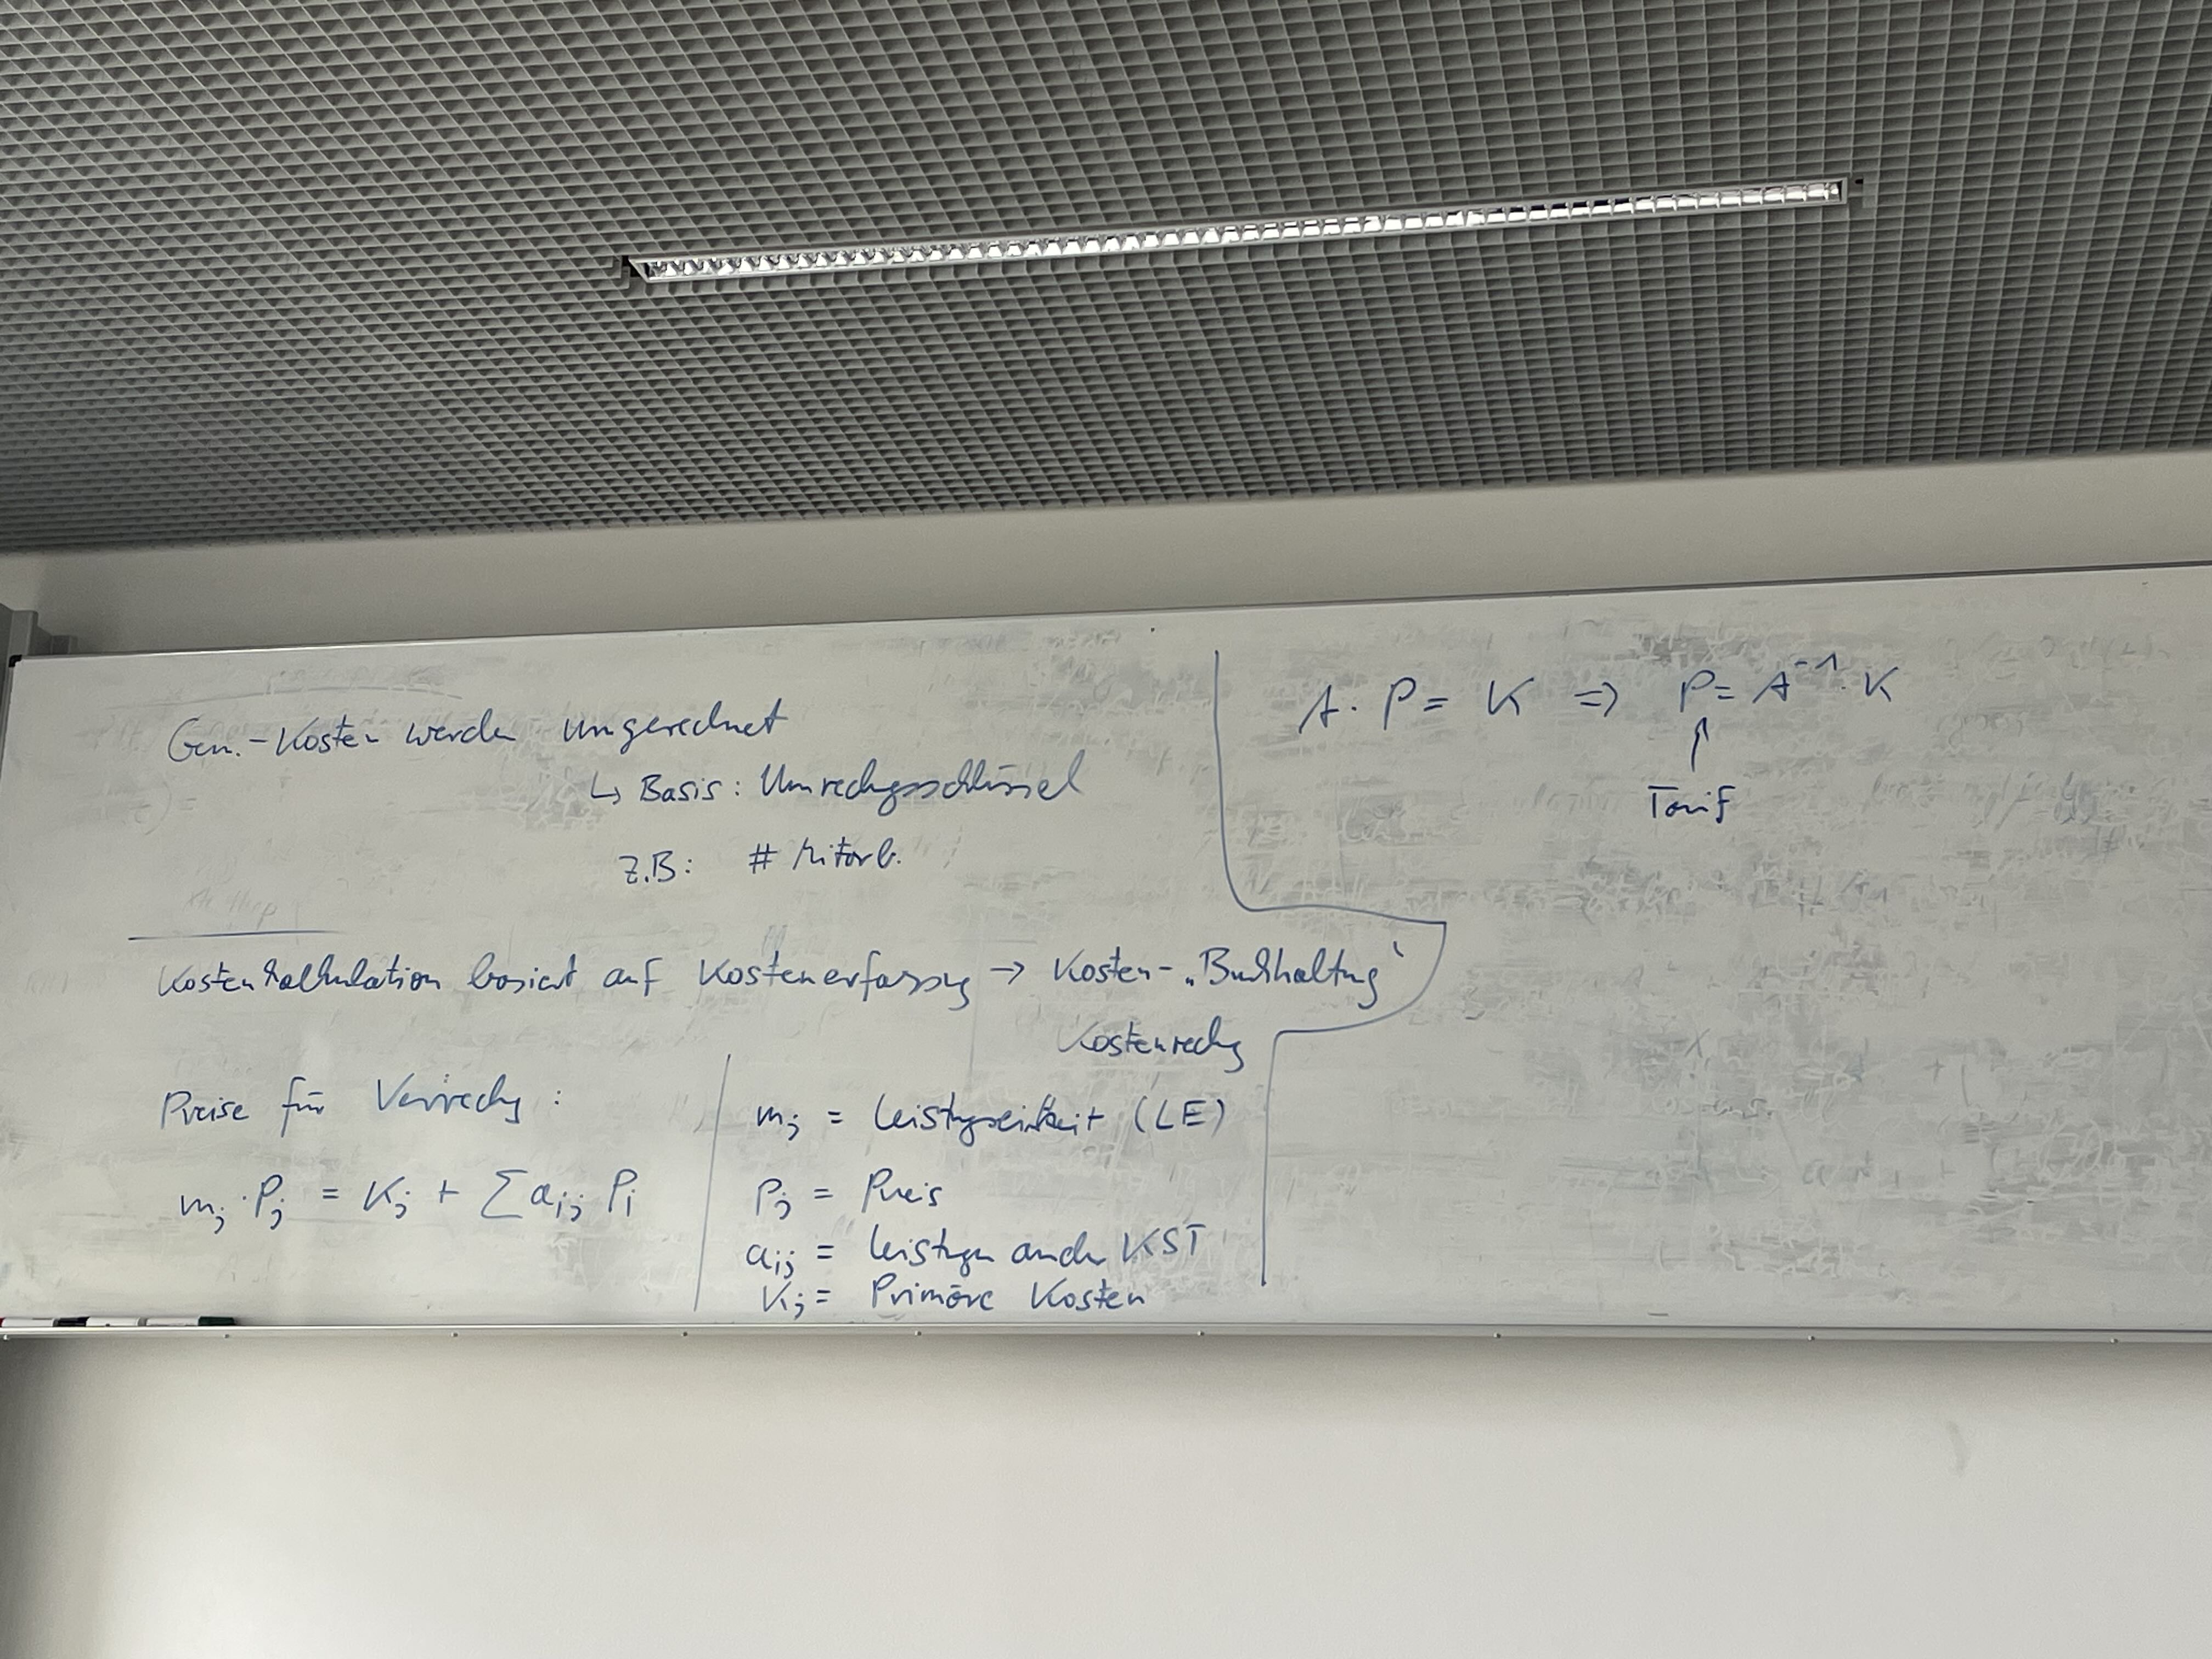 Gem.-Kosten werden umgerechnet
↳ Basis: Umrechngsschlüssel
z.B: # Mitarb.
Kostenkalkulation basiert auf Kostenerfassg → Kosten-„Buchhaltng“
Kostenrechg
Preise für Verrechg:
m_j · P_j = K_j + ∑ a_ij P_i
m_j = Leistgseinheit (LE)
P_j = Preis
a_ij = Leistgn ander KST
K_j = Primäre Kosten
A · P = K ⇒ P = A⁻¹ · K
↑
Tarif